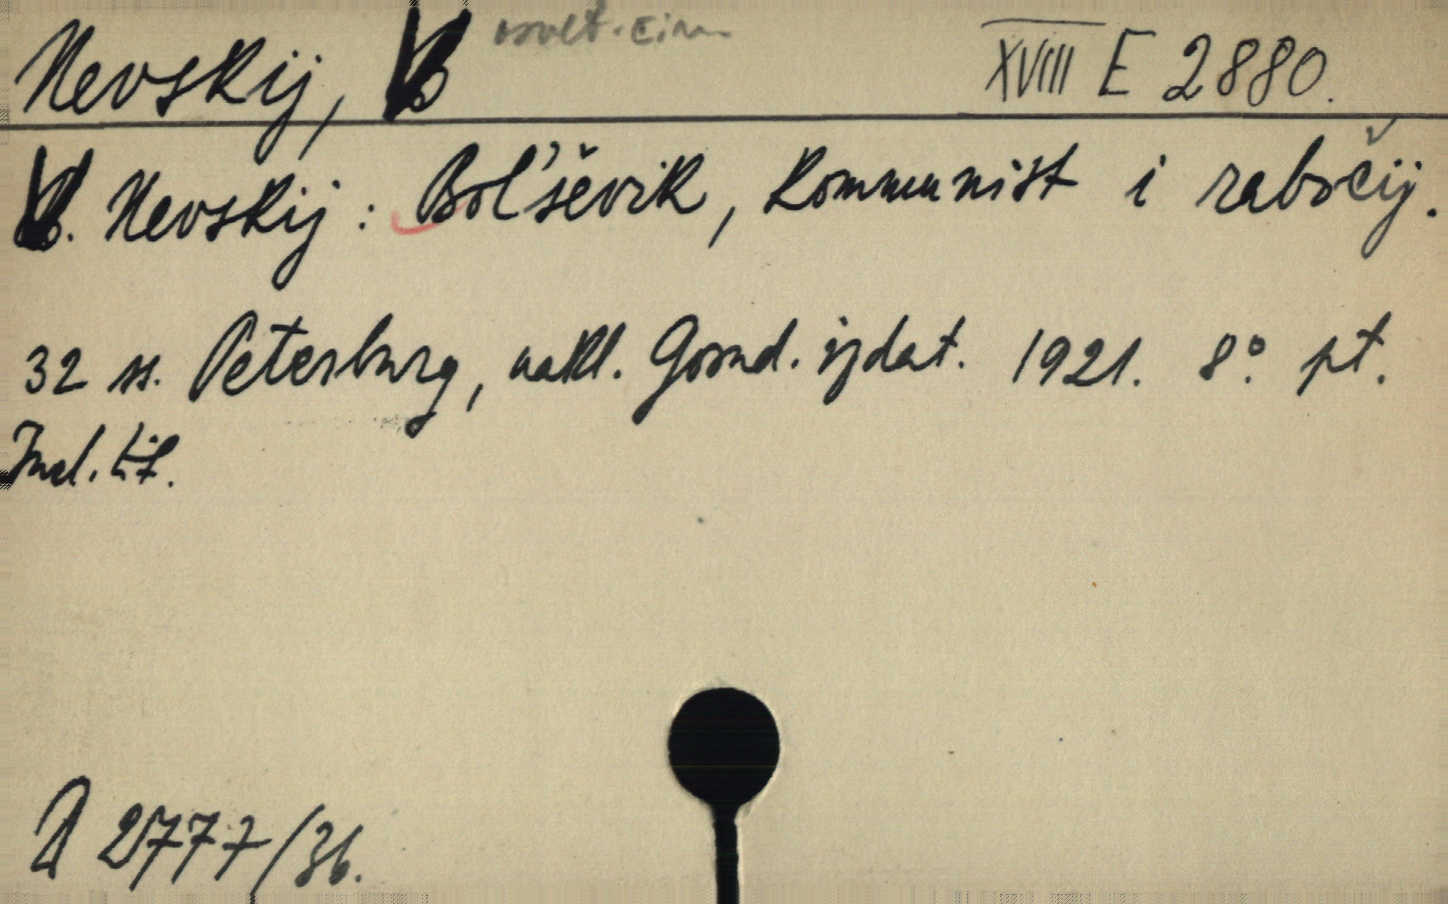 Nevskij, V XVIII E 2880.
V. Nevskij: Bol'ševik, kommunist i rabočij.
32 ss. Peterburg, nakl. Gosud. izdat. 1921. 8°. pt.
2777/36.